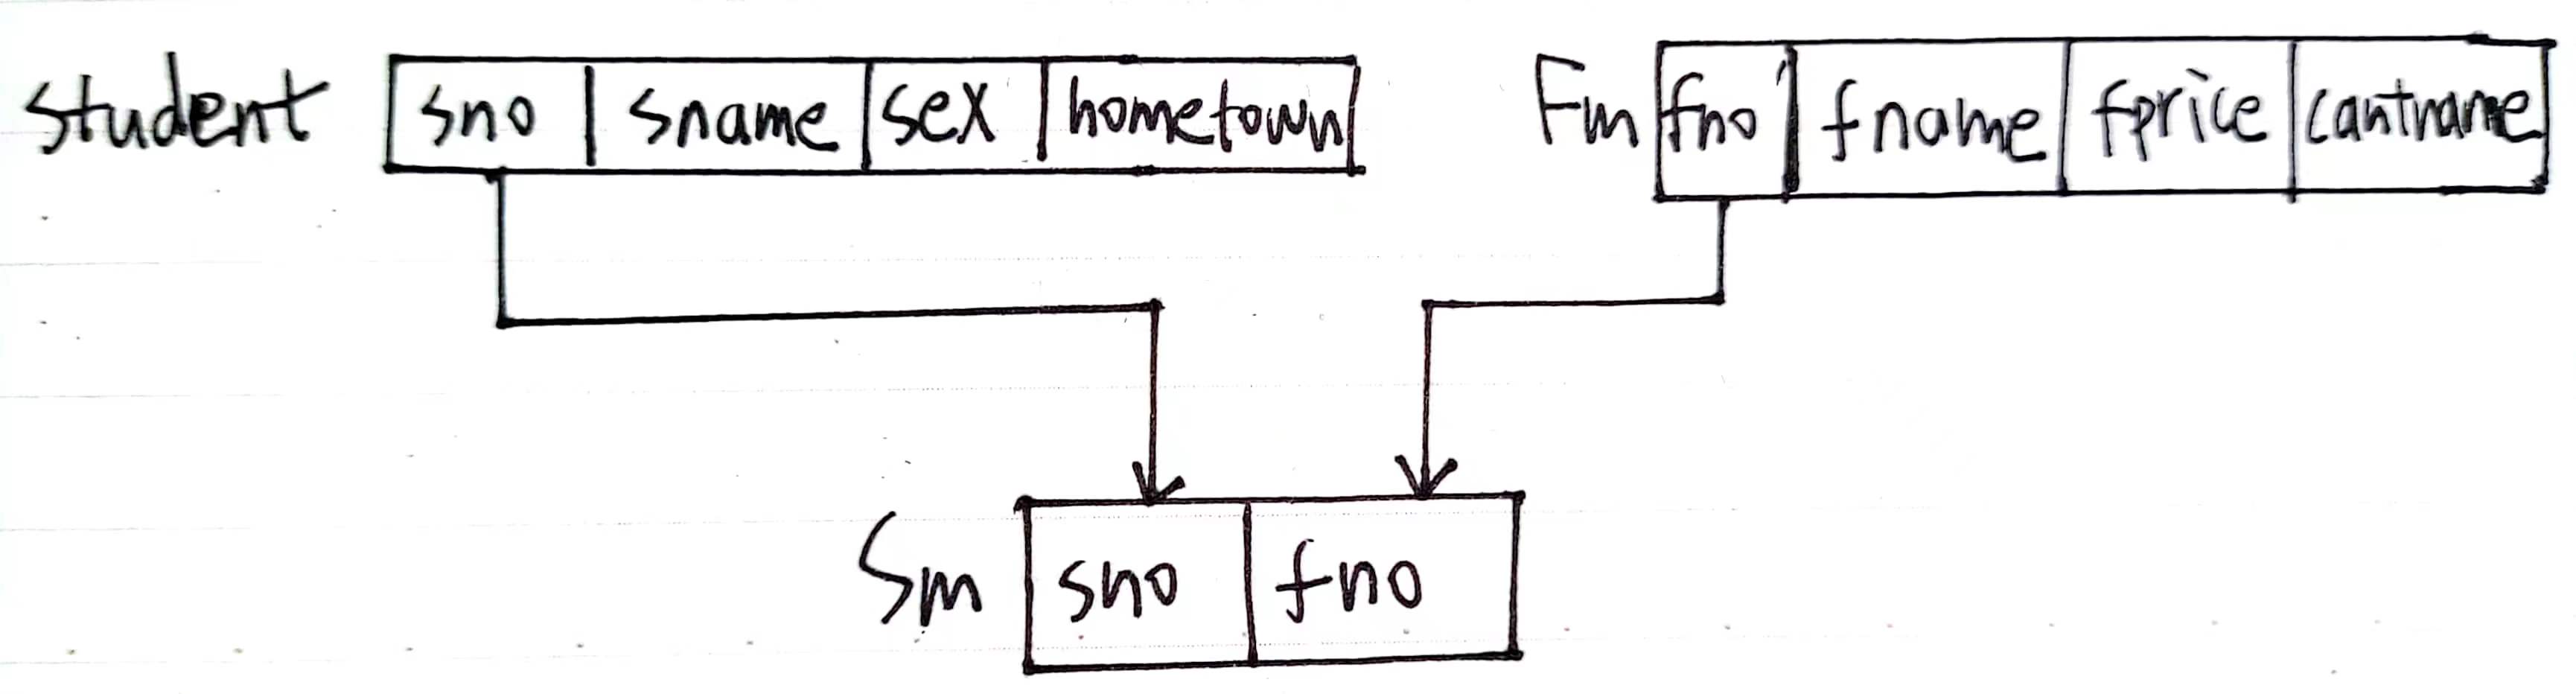 student sno sname sex hometown Fm fno fname fprice cantname
Sm sno fno